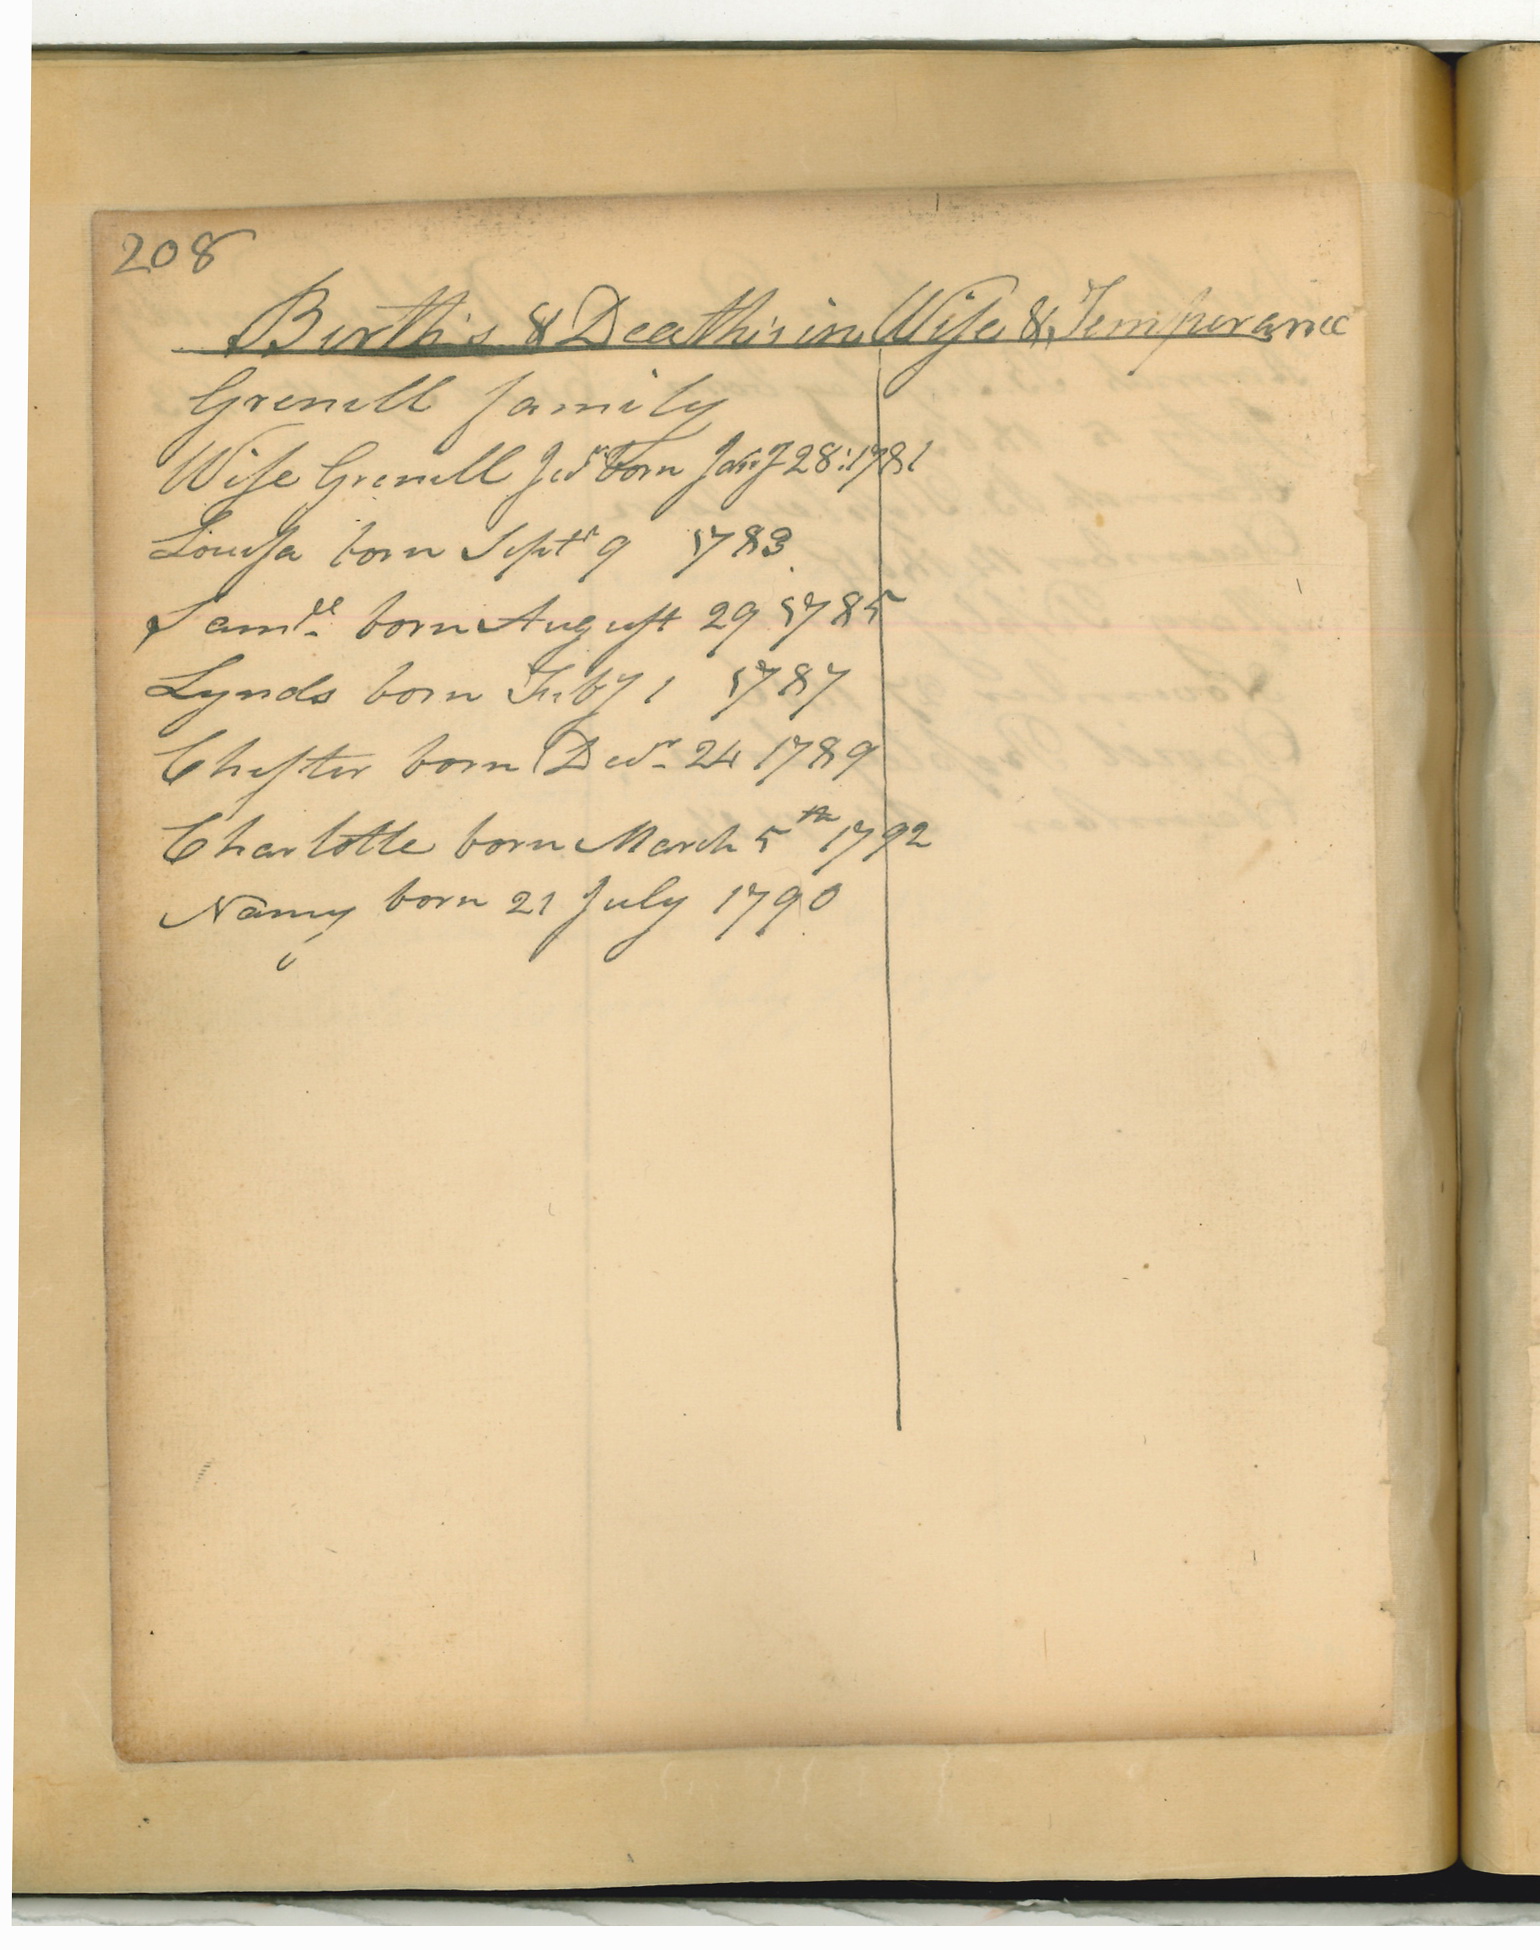 208
Births & Deaths in Wise & Temperance
Grenell family
Wise Grenell Jedr born Jany 28: 1781
Louisa born Septr 9 1783
Samll. born August 29 1785
Lynds born Feby 1 1787
Chester born Decr. 24 1789
Charlotte born March 5th 1792
Nancy born 21 July 1790